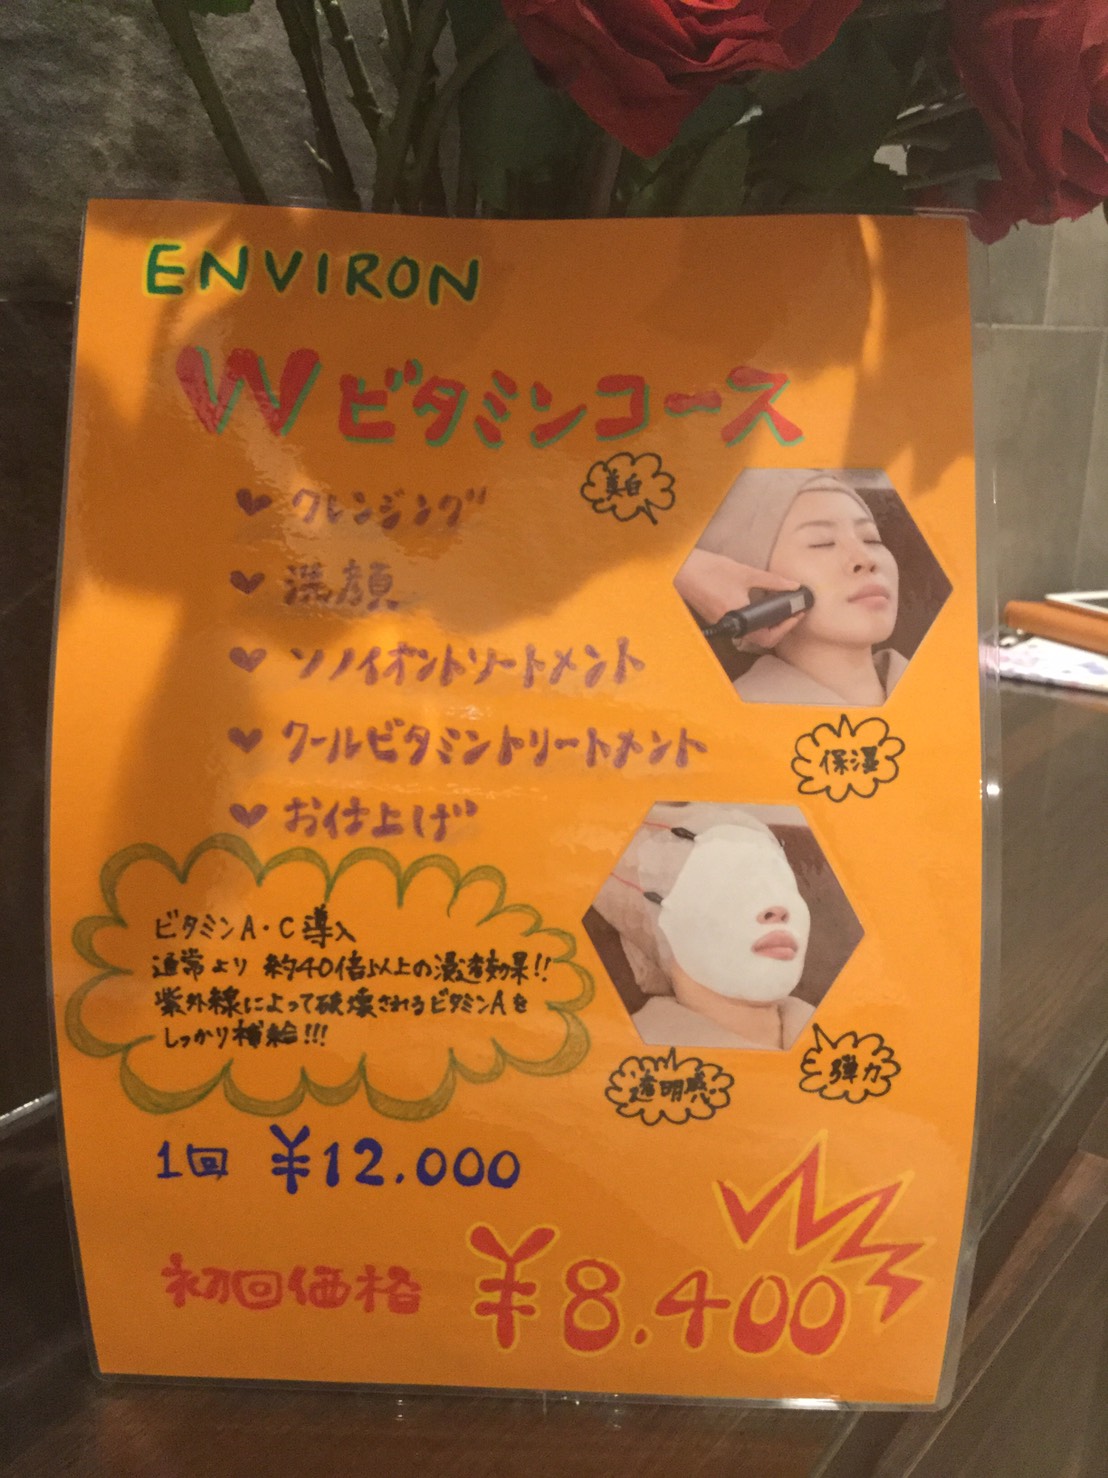 ENVIRON
Wビタミンコース
美白
♥ クレンジング
♥ 洗顔
♥ ソノイオントリートメント
♥ クールビタミントリートメント
♥ お仕上げ
保湿
ビタミンA・C導入
通常より 約40倍以上の浸透効果!!
紫外線によって破壊されるビタミンAを
しっかり補給!!!
透明感
弾力
1回 ¥12,000
初回価格 ¥8,400